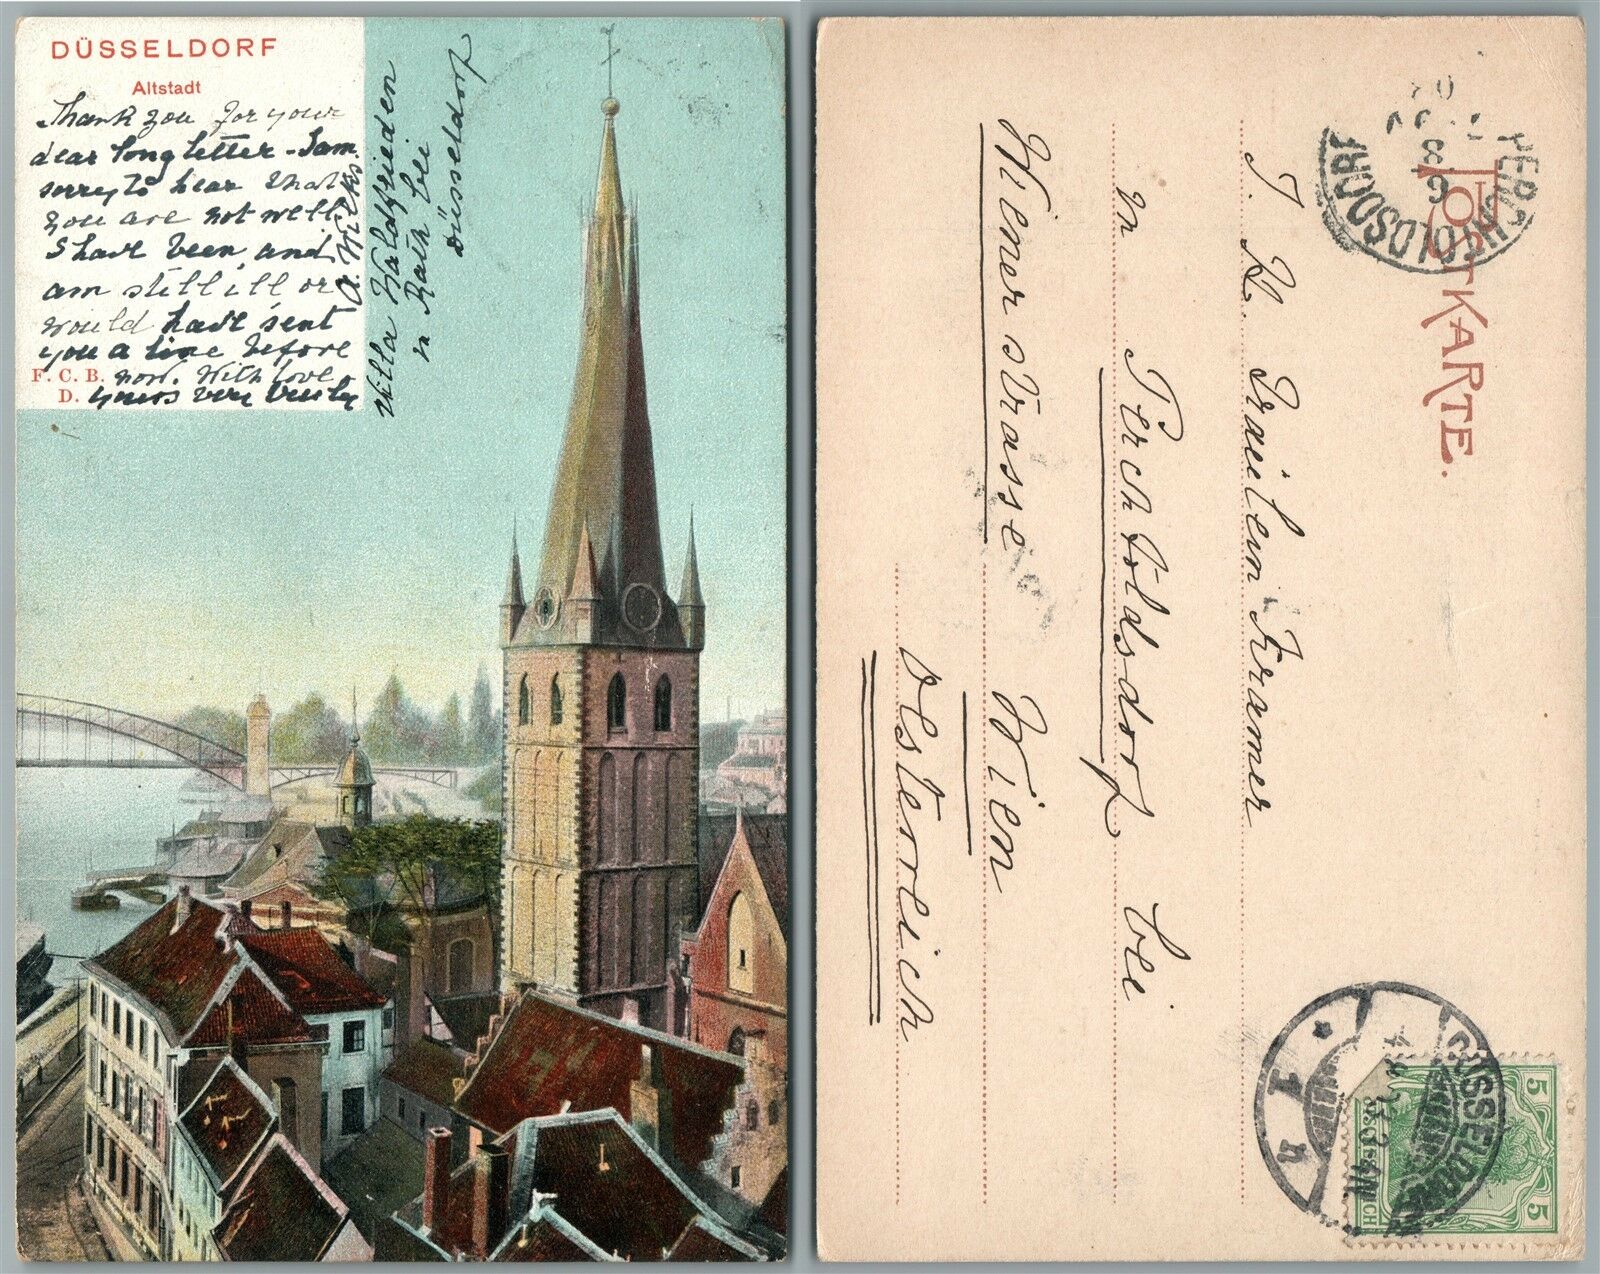 DÜSSELDORF
Altstadt
Thank you for your
dear long letter - I am
sorry to hear that
you are not well
I have been and
am still ill or
would have sent
you a line before
F. C. B. now. With love
D. yours very truly
A. Wilks.
Villa Waldfrieden
in Rath bei
Düsseldorf
POSTKARTE.
PERCHTOLDSDORF
I. H. Fräulein Kramer
in Perchtoldsdorf bei
Wiener strasse Wien
Oesterreich
DÜSSELDORF
1 n
5 5